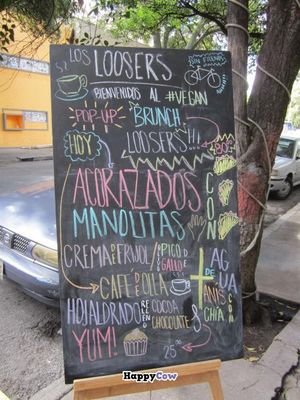 LOS
LOOSERS
BIENVENIDOS AL #VEGAN
POP-UP BRUNCH
HOY LOOSERS!!!
ACORAZADOS
MANOLITAS
CON
CREMA DE FRIJOL/ •PICO DE GALLO
+
CAFE DE OLLA
AGUA DE
ANÍS
CHIA
HOJALDRADO RELLENO
COCOA
CHOCOLATE
YUM!
25.00
HappyCow